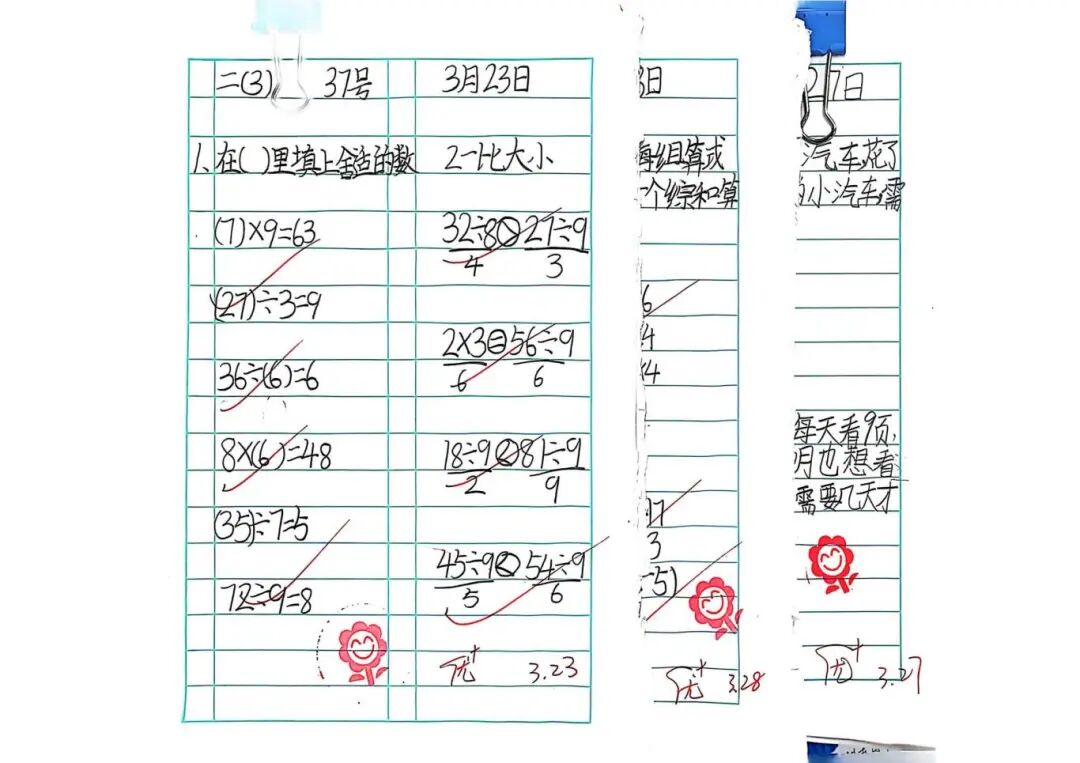 二(3) 37号 3月23日
1、在( )里填上合适的数
(7)×9=63
(27)÷3=9
36÷(6)=6
8×(6)=48
(35)÷7=5
72÷9=8
2、比大小
32÷8>27÷9
4 3
2×3=56÷9
6 6
18÷9<81÷9
2 9
45÷9<54÷9
5 6
优+ 3.23
8日
每组算式
一个综和算
6
4
×4
17
3
-5)
优+ 3.28
27日
汽车花了
的小汽车,需
每天看9页,
月也想看
需要几天才
优+ 3.27